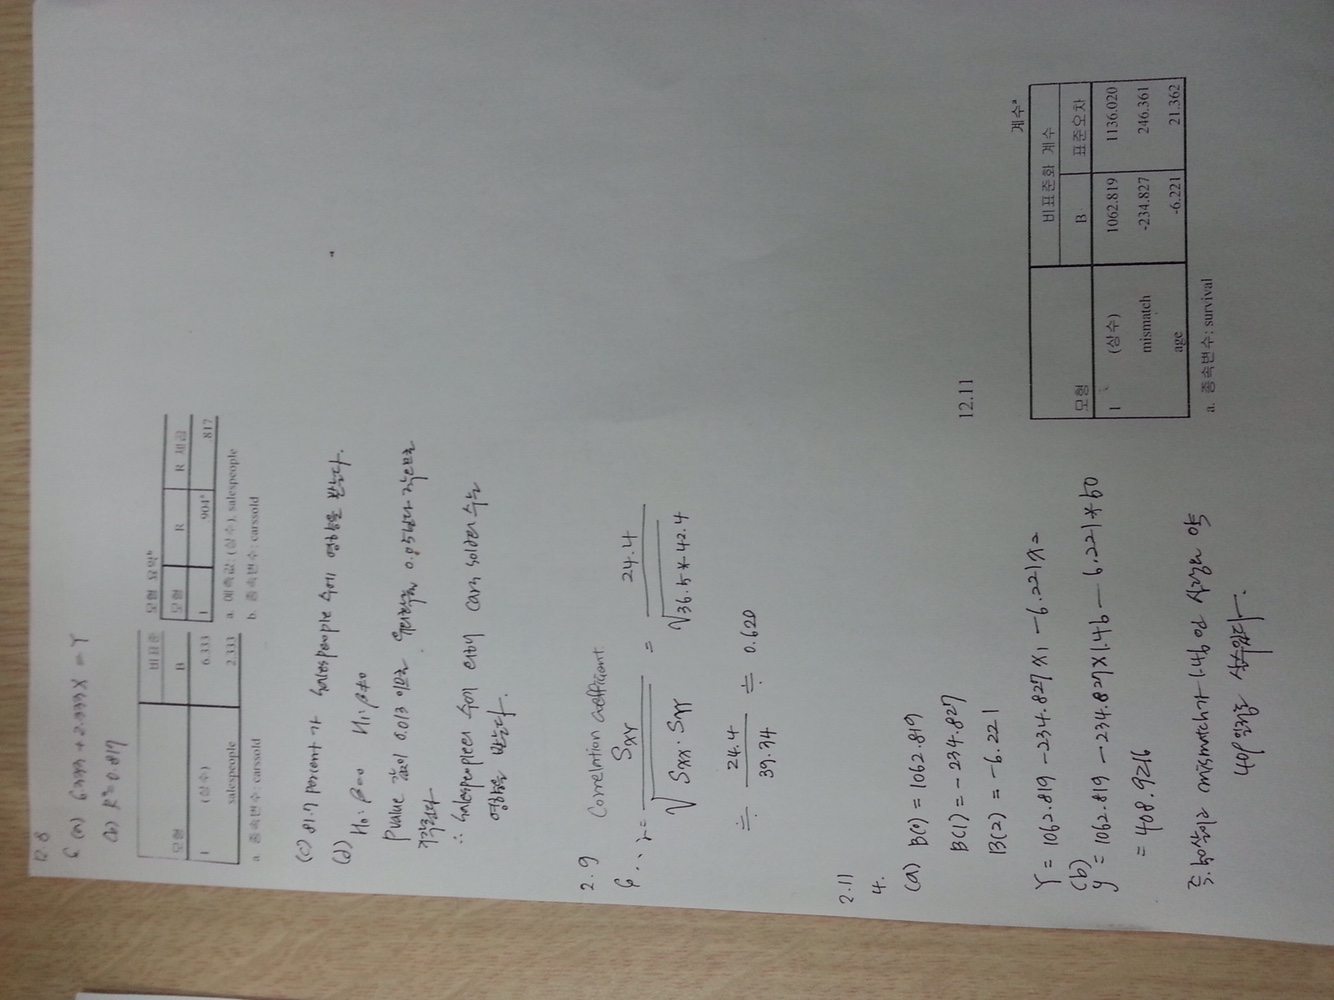 12.8
6 (a) 6.333 + 2.333X = Y
(b) R²=0.817
비표준
모형 B
1 (상수) 6.333
salespeople 2.333
a. 종속변수: carssold
모형 요약ᵇ
모형 R R 제곱
1 .904ᵃ .817
a. 예측값: (상수), salespeople
b. 종속변수: carssold
(c) 81.7 percent 가 salespeople 수에 영향을 받는다.
(d)
H₀: β=0 H₁: β≠0
Pvalue 값이 0.013 이므로 유의확률 0.05보다 작으므로
기각된다
∴ salespeople의 수에 의해 cars sold의 수는
영향을 받는다.
2.9 Correlation coefficient
6.. r = Sxy / √Sxx · Syy = 24.4 / √36.5 * 42.4
≒ 24.4 / 39.34 ≒ 0.620
2.11
4.
(a) B(0) = 1062.819
B(1) = - 234.827
B(2) = -6.221
Y = 1062.819 -234.827 x₁ -6.221 x₂
(b)
y = 1062.819 -234.827×1.46 - 6.221*50
= 408.9216
즉, 50살이고 mismatch가 1.46 인 사람은 약
409일정도 살수있다.
12.11
계수ᵃ
비표준화 계수
모형 B 표준오차
1 (상수) 1062.819 1136.020
mismatch -234.827 246.361
age -6.221 21.362
a. 종속변수: survival